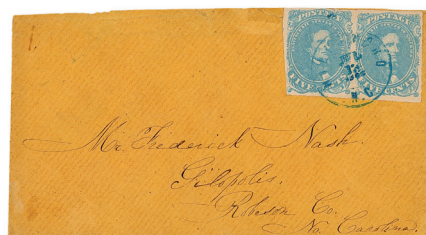 POSTAGE POSTAGE
FIVE CENTS
Mr. Frederick Nash.
Gilopolis.
Robeson Co.
No. Carolina.